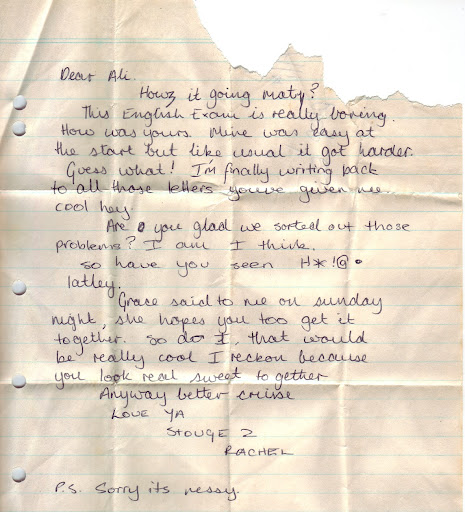 Dear Ali.
Howz it going Maty?
This English Exam is really boreing.
How was yours. Mine was easy at
the start but like usual it got harder.
Guess what! I'm finally writing back
to all those letters youve given me.
cool hey
Are you glad we sorted out those
problems? I am I think.
so have you seen H*!@•
latley.
Grace said to me on sunday
night, she hopes you too get it
together. so do I, that would
be really cool I reckon because
you look real sweet together
Anyway better cruise
LOVE YA
STOUGE 2
RACHEL
P.S. Sorry its messy.